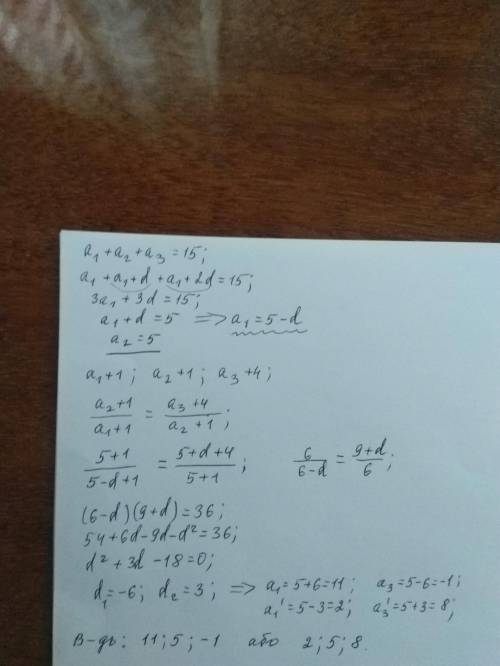 a₁ + a₂ + a₃ = 15;
a₁ + a₁ + d + a₁ + 2d = 15;
3a₁ + 3d = 15;
a₁ + d = 5 => a₁ = 5 - d
a₂ = 5
a₁ + 1; a₂ + 1; a₃ + 4;
(a₂ + 1)/(a₁ + 1) = (a₃ + 4)/(a₂ + 1);
(5 + 1)/(5 - d + 1) = (5 + d + 4)/(5 + 1); 6/(6 - d) = (9 + d)/6;
(6 - d)(9 + d) = 36;
54 + 6d - 9d - d² = 36;
d² + 3d - 18 = 0;
d₁ = -6; d₂ = 3; => a₁ = 5 + 6 = 11; a₃ = 5 - 6 = -1;
a₁' = 5 - 3 = 2; a₃' = 5 + 3 = 8;
В-дь: 11; 5; -1 або 2; 5; 8.